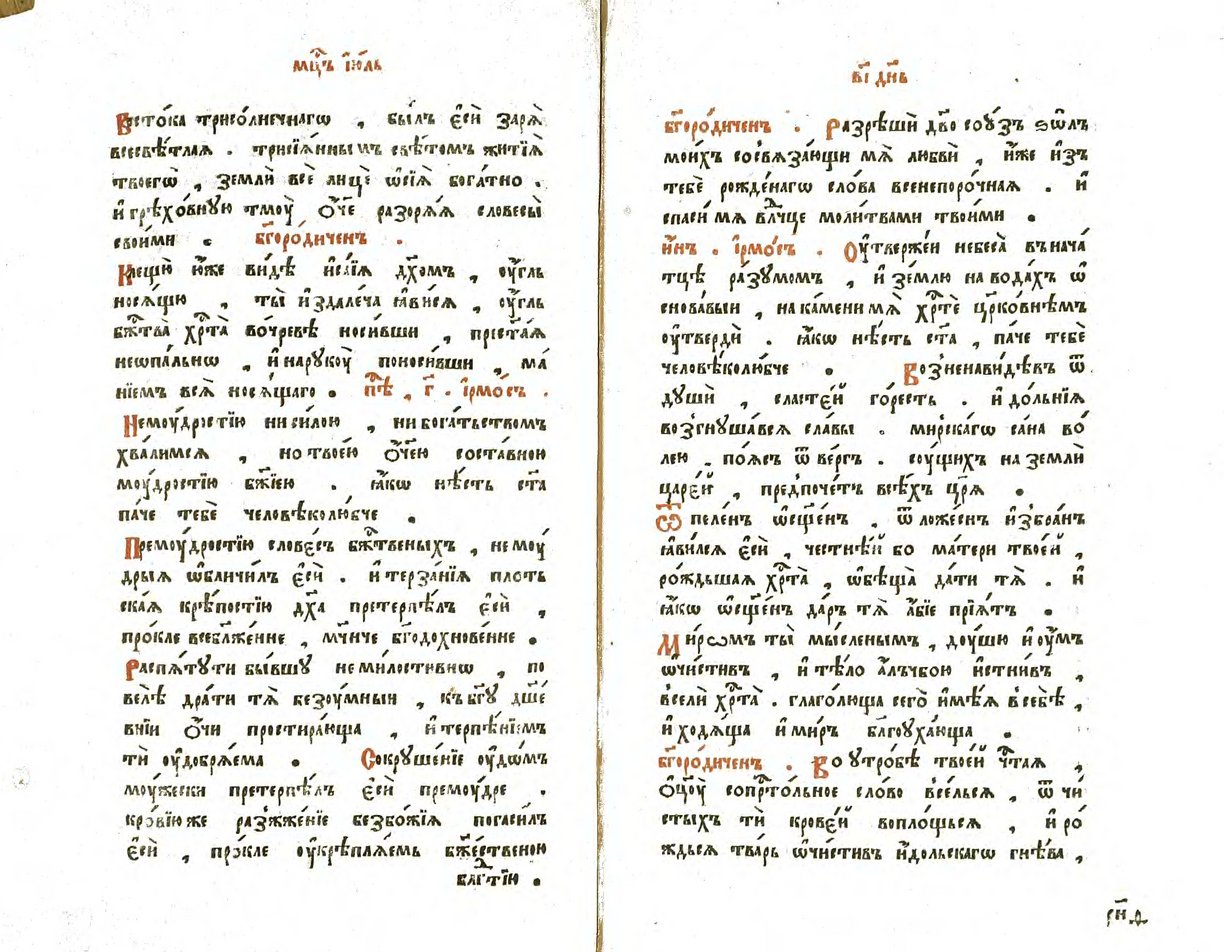 мц҃ъ і҆ю́ль
Восто́ка трисо́лнечнагѡ , бы́лъ є҆сѝ заря̀
всесвѣ́тлая . трисїѧ́ннымъ свѣ́томъ житїѧ̀
твоегѡ̀ , землѝ всѐ лицѐ ѡ҆сїѧ̀ бога́тно .
и҆ грѣхо́вную тмоу̀ ѻ҆́ч҃е разоря́ѧ словесы̀
свои́ми . бг҃оро́диченъ .
Клещю̀ ю҆́же ви́дѣ и҆са́їѧ дх҃омъ , оу҆́гль
нося́щю , ты̀ и҆здале́ча ꙗ҆ви́сѧ , оу҆́гль
бжⷭ҇тва̀ хрⷭ҇та̀ во́чревѣ носи́вши , прⷱ҇тая
неѡпа́льнѡ , и҆ нарукоу̀ поноси́вши , ма́
нїемъ всѧ̀ нося́щаго . пѣ , г҃ . і҆рмо́съ .
Немоу́дростїю ни си́лою , ни бога́тьствомъ
хва́лимсѧ , но твое́ю ѻ҆́ч҃ею соста́вною
моу́дростїю бж҃їею . ꙗ҆́кѡ нѣ́сть ст҃а
па́че тебѐ человѣколю́бче .
Премоу́дростїю слове́съ бжⷭ҇твеныхъ , не моу́
дрыѧ ѡ҆бличи́лъ є҆сѝ . и҆ терза́нїѧ пло́ть
скаѧ крѣ́постїю дх҃а претерпѣ́лъ є҆сѝ ,
про́кле всеблаже́нне , мч҃нче бг҃одохнове́нне .
Распя́тути бы́вшу неми́лостивнѡ , по
велѣ̀ дра́ти тѧ̀ безоу́мныи , къ бг҃у дш҃е́
внїи ѻ҆́чи простира́юща , и҆ терпѣ́нїемъ
тѝ оу҆добря́ема . Сокруше́нїе оу҆дѡ́мъ
моу́жески претерпѣ́лъ є҆сѝ премоу́дре .
кро́вїю же разжже́нїе безбо́жїѧ погаси́лъ
є҆сѝ , про́кле оу҆крѣпля́емь бжⷭ҇твеною
блгⷣтїю .
в҃і дн҃ь
бг҃оро́диченъ . Разрѣшѝ дв҃о соу́зъ ѕѡ́лъ
мои́хъ сосвяза́ющи мѧ̀ любвѝ , и҆́же и҆зъ
тебѐ рожде́нагѡ сло́ва всенепоро́чнаѧ . и҆
спасѝ мѧ влⷣчце моли́твами твои́ми .
и҆́нъ . і҆рмо́съ . Оу҆твержеи небеса̀ въ нача́
тцѣ ра́зумомъ , и҆ зе́млю на вода́хъ ѡ҆
снова́выи , на ка́мени мѧ̀ хрⷭ҇тѐ цр҃ко́внѣмъ
оу҆твердѝ . ꙗ҆́кѡ нѣ́сть ст҃а , па́че тебѐ
человѣколю́бче . Возненави́дѣвъ ѿ
душѝ , сласте́й го́ресть . и҆ до́льнїѧ
возгнуша́всѧ сла́вы . мирска́гѡ са́на во́
лею , по́ясъ ѿ ве́ргъ . соу́щихъ на землѝ
царе́й , предпоче́тъ всѣ́хъ цр҃ѧ .
Ѿ пеле́нъ ѡ҆сщ҃е́нъ , ѿ ложе́снъ и҆збра́нъ
ꙗ҆ви́лсѧ є҆сѝ , честнѣ́й бо ма́тери твое́й ,
ро́ждьшаѧ хрⷭ҇та̀ , ѡ҆бѣща̀ да́ти тѧ̀ . и҆
ꙗ҆́кѡ ѡ҆сщ҃е́нъ да́ръ тѧ̀ а҆́бїе прїя́тъ .
Ми́рѡмъ ты̀ мы́сленымъ , доу́шю и҆ оу҆́мъ
ѡ҆чи́стивъ , и҆ тѣ́ло а҆́лъчбою и҆стни́въ ,
вселѝ хрⷭ҇та̀ . глаго́люща сего̀ и҆мѣ́ѧ в себѣ̀ ,
и҆ ходя́ща и҆ ми́ръ благоуха́юща .
бг҃оро́диченъ . Во оутро́бѣ твое́й чтⷭ҇аѧ ,
ѻ҆ц҃оу̀ сопрⷭ҇то́льное сло́во все́льсѧ , ѿ чи́
стыхъ тѝ крове́й вопло́щьсѧ , и҆ ро́
ждьсѧ тва́рь ѡ҆чи́стивъ и҆́дольскагѡ гнѣ́ва ,